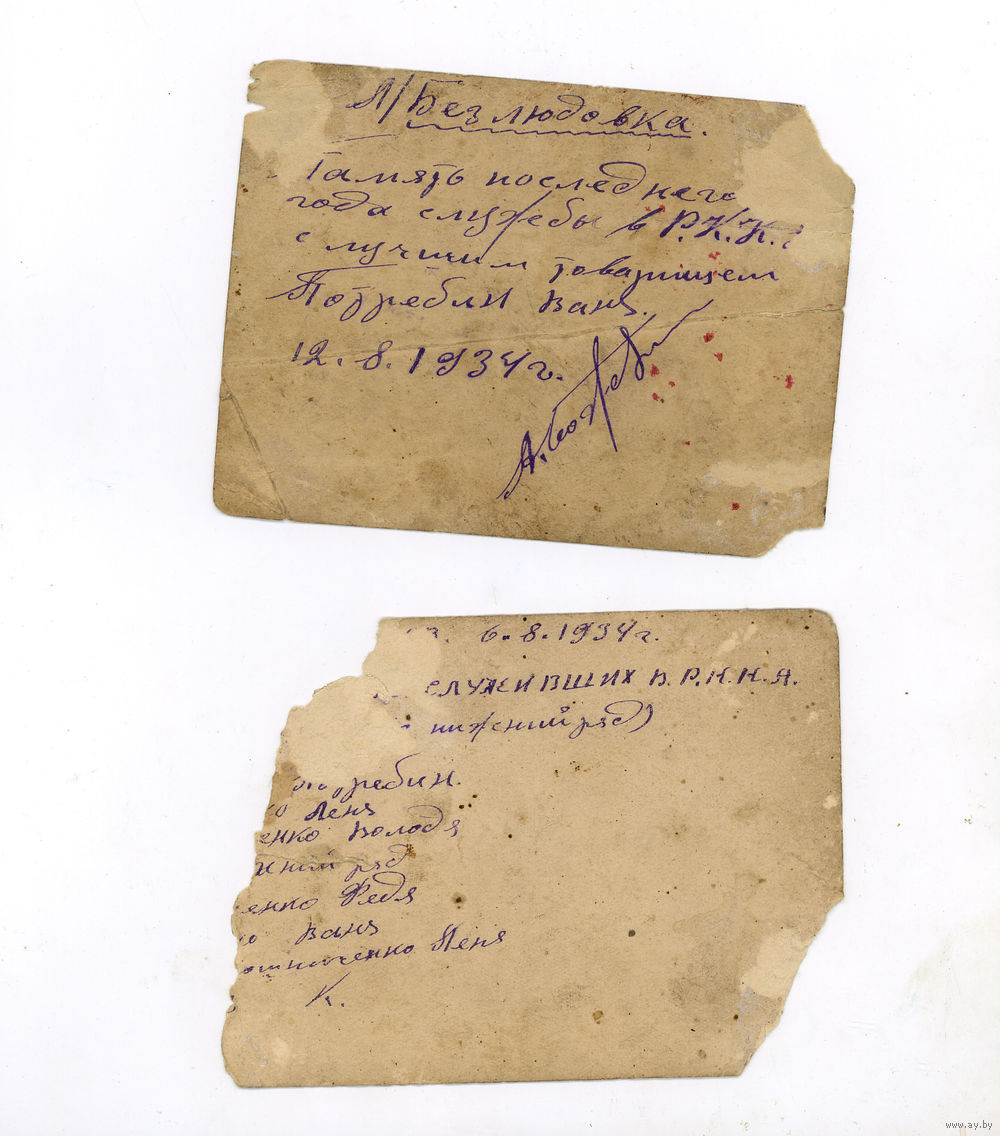 Л/Безлюдовка.
Память последнего
года службы в Р.К.К.
с лучшим товарищем
Потребин Ваня.
12.8.1934г.
6.8.1934г.
служивших в.Р.К.К.А.
нижний ряд)
отребин.
ко Леня
енко Володя
жний ряд
енко Федя
ко Ваня
Леня
К.
www.ay.by